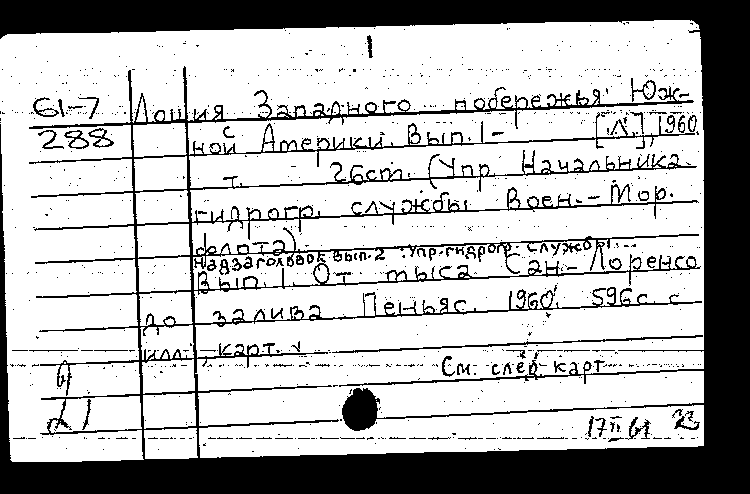 1
61-7 Лоция Западного побережья Юж-
288 ной Америки. Вып. 1- [Л.], 1960
т. 26cm. (Упр. Начальника
гидрогр. службы Воен.-Мор.
флота).
Надзаголовок вып. 2: Упр. гидрогр. службы...
Вып. 1. От мыса Сан-Лоренсо
до залива Пеньяс. 1960. 596 с. с
илл., карт.
См. след. карт
17 II 61